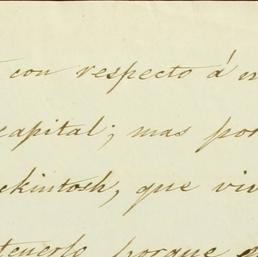 con respecto á
capital; mas por
ckintosh, que viv
tenerlo porque